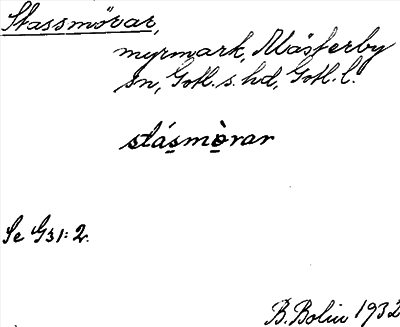 Stassmörar,
myrmark, Mästerby
sn, Gotl. s. hd, Gotl. l.
stásmòrar
Se G31:2.
B. Bolin 1932